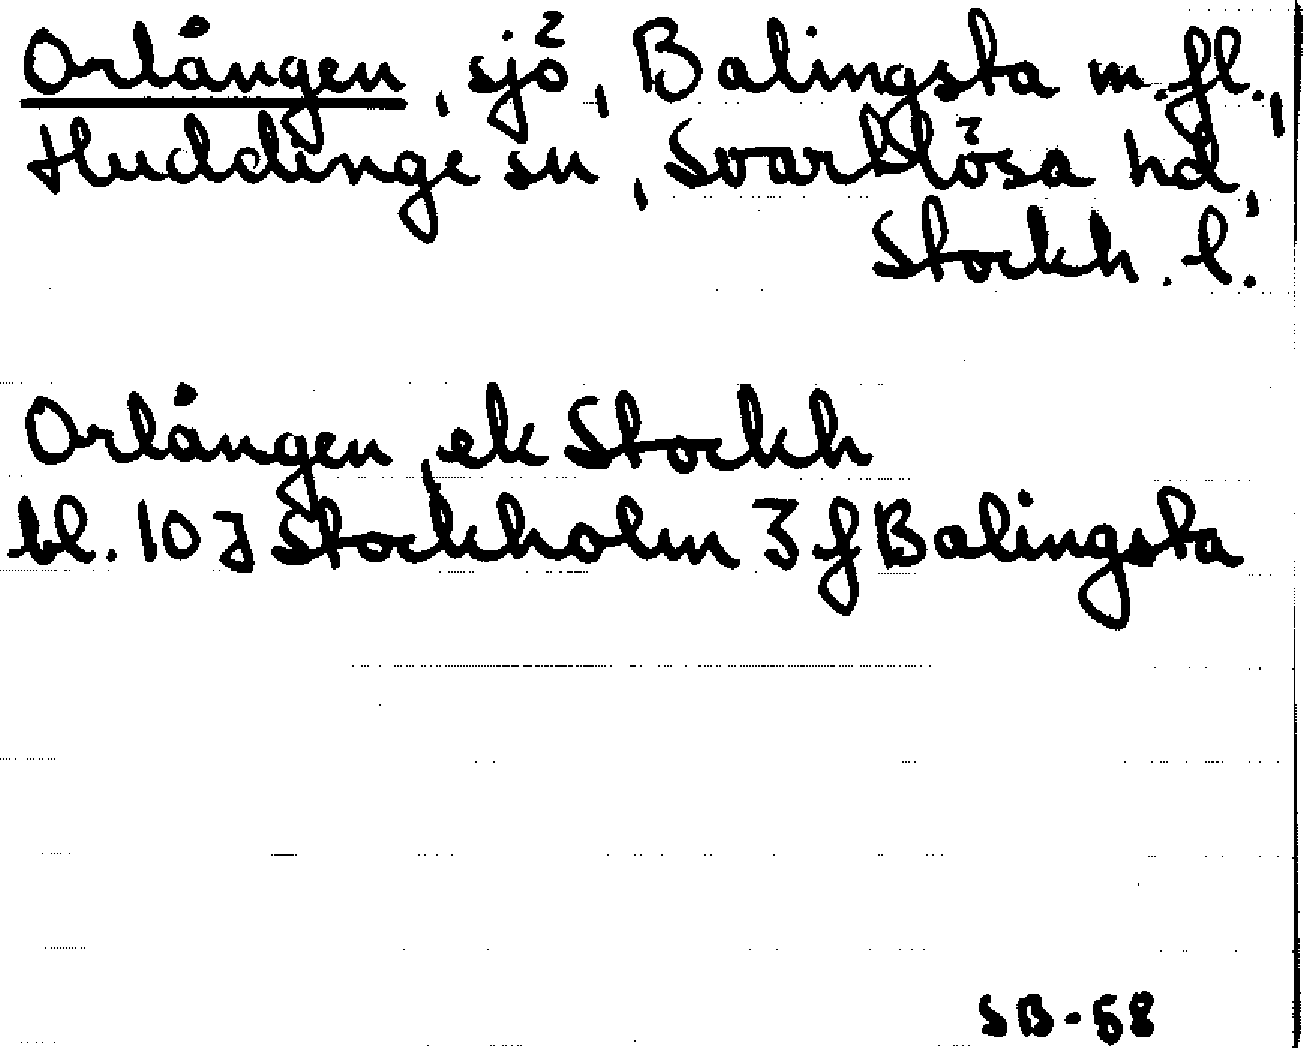 Orlången, sjö, Balingsta m.fl.,
Huddinge sn, Svartlösa hd,
Stockh. l.
Orlången, ek Stockh
bl. 10 J Stockholm 3 f Balingsta
SB-68